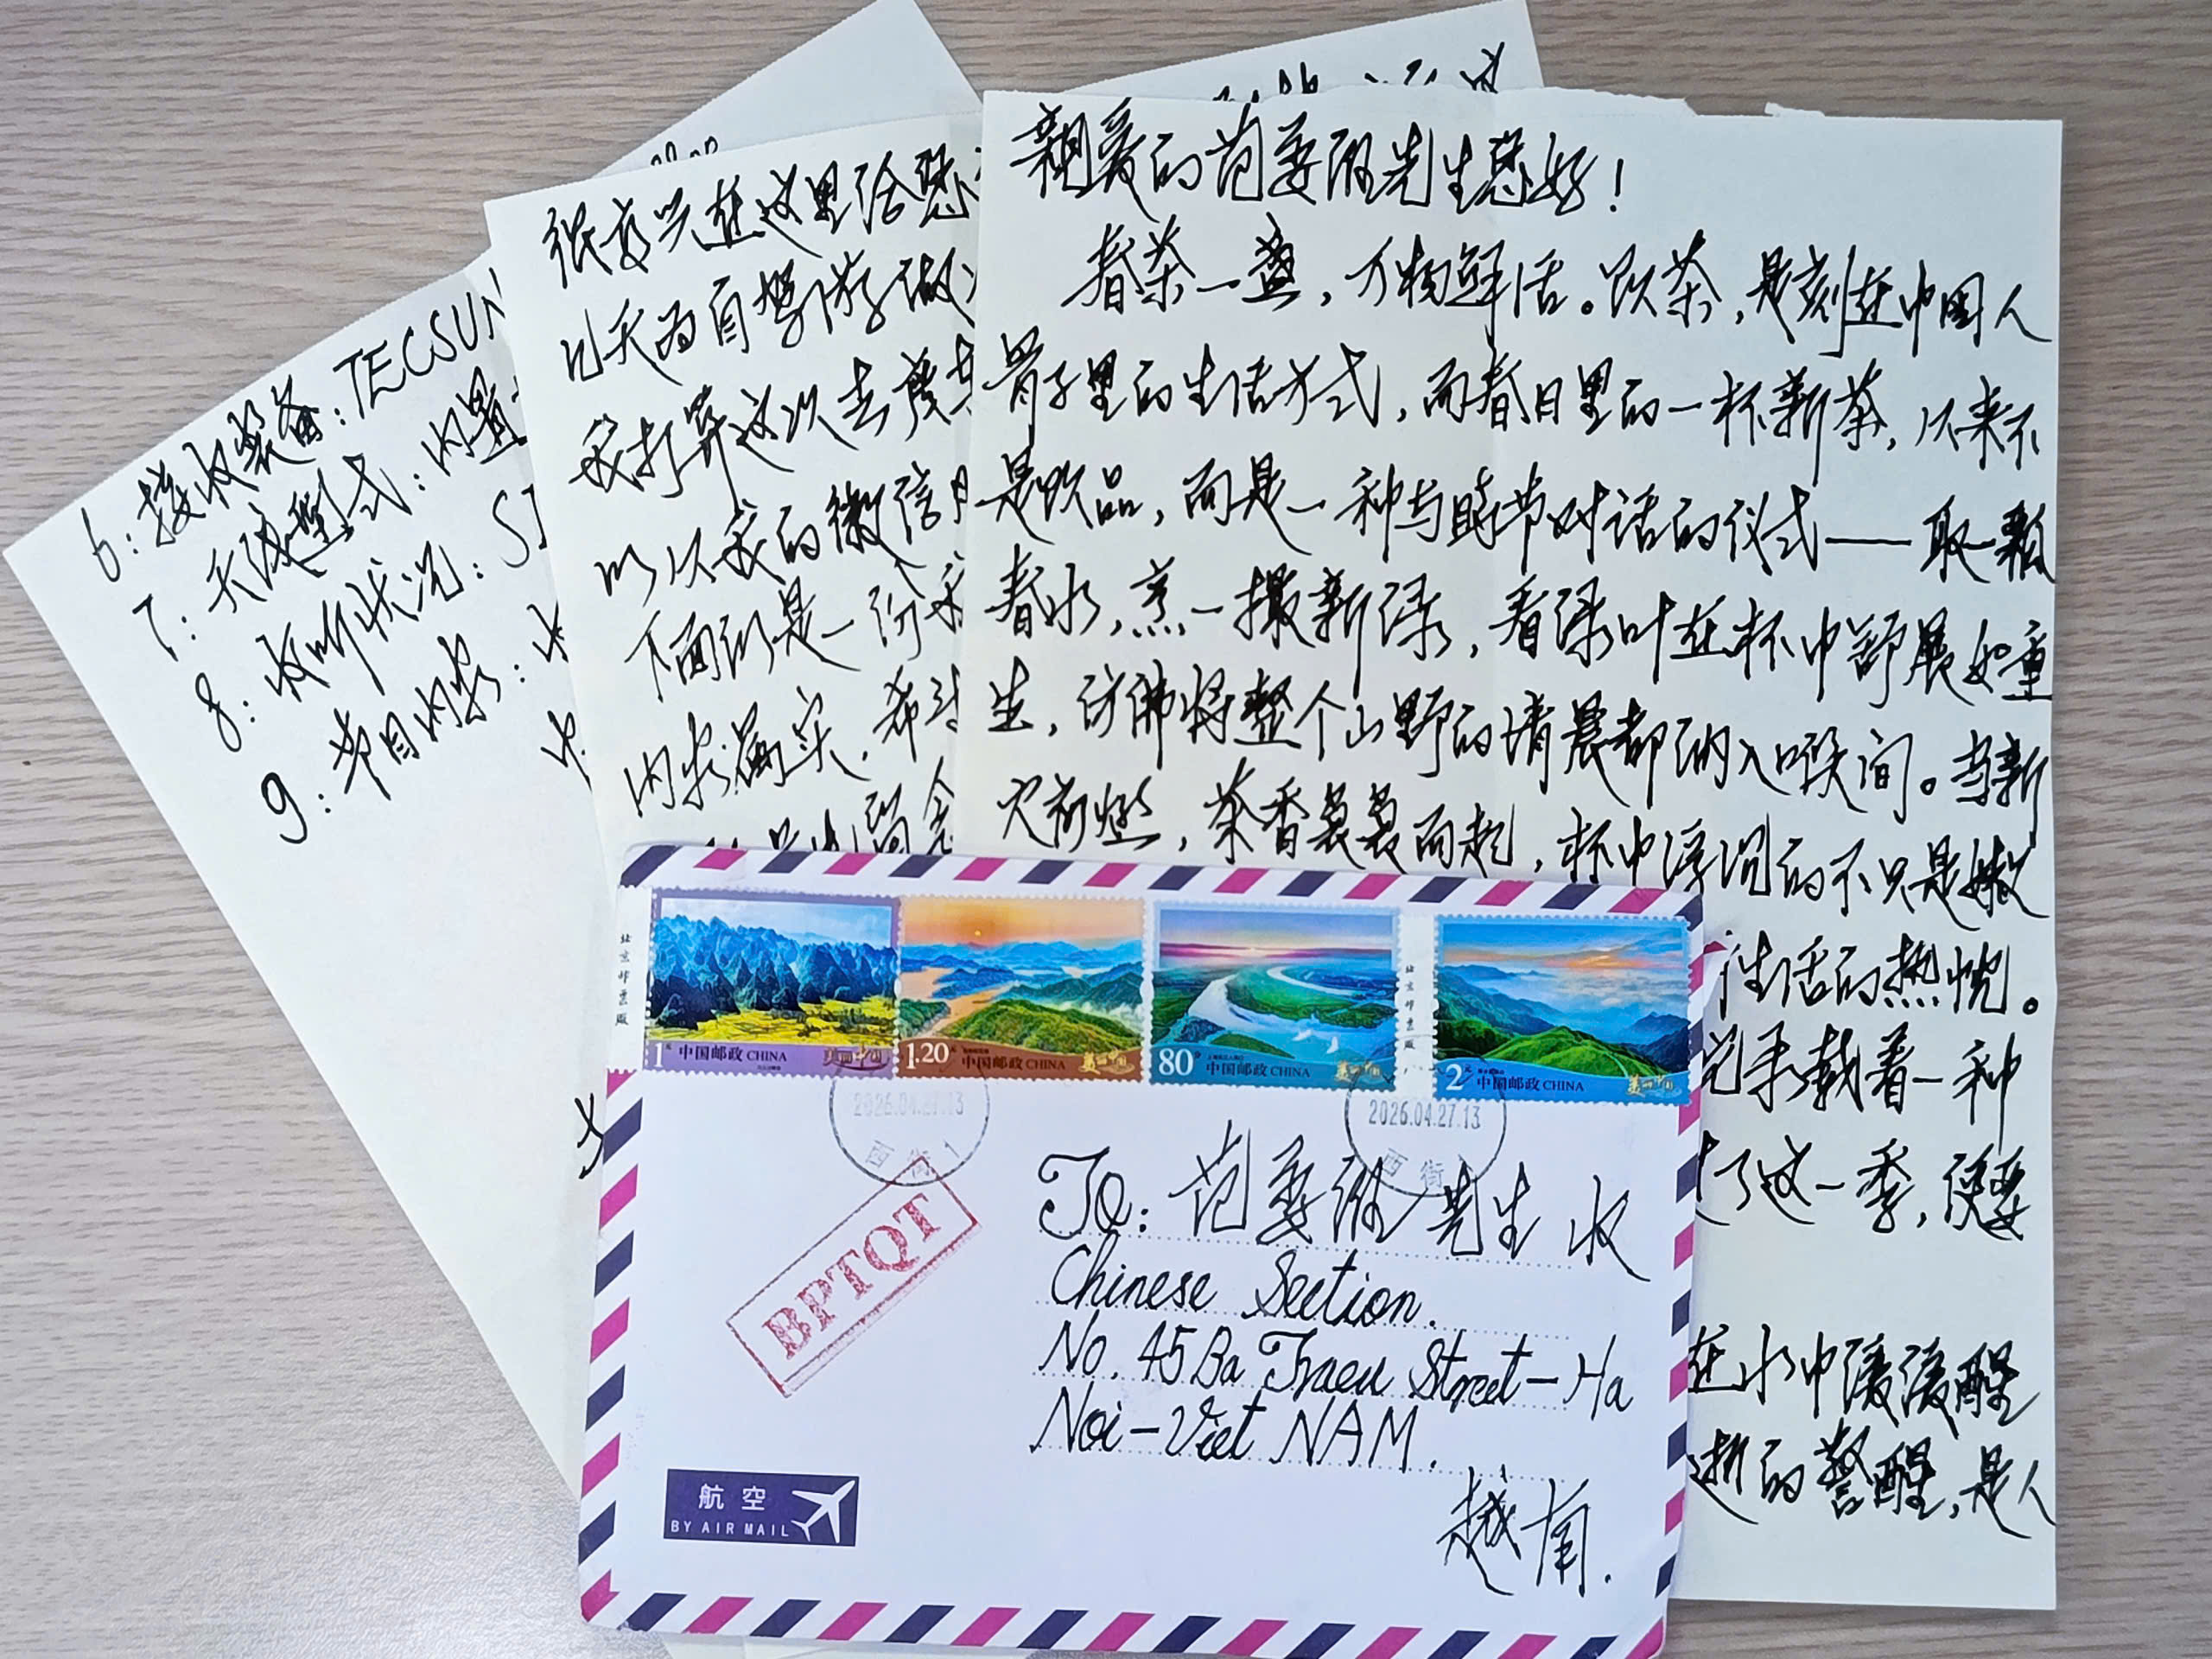 6：接收装备：TECSUN
7：天线型式：内置
8：收听状况：SI
9：节目内容：
很高兴在这里给您
几天为自驾游做
我打算这次去
以从我的微信
下面的是一份
内容确实，希
亲爱的范委 先生您好！
春茶一盏，万物鲜活。饮茶，是刻在中国人
骨子里的生活方式，而春日里的一杯新茶，从来不
是饮品，而是一种与时节对话的仪式——取一瓢
春水，烹一撮新绿，看绿叶在杯中舒展如重
生，仿佛将整个山野的清晨都纳入喉间。当新
火初燃，茶香袅袅而起，杯中浮沉的不只是嫩
生活的热忱。
承载着一种
了这一季，便要
在水中缓缓醒
逝的警醒，是人
北京邮票厂
1元 中国邮政 CHINA 美丽中国
1.20元 中国邮政 CHINA 美丽中国
80分 中国邮政 CHINA 美丽中国
北京邮票厂
2元 中国邮政 CHINA 美丽中国
2026.04.27.13
西街1
2026.04.27.13
西街
BPTQT
To：范委 先生 收
Chinese Section.
No. 45 Ba Traeu Street – Ha
Noi – Viet NAM.
越南.
航空
BY AIR MAIL